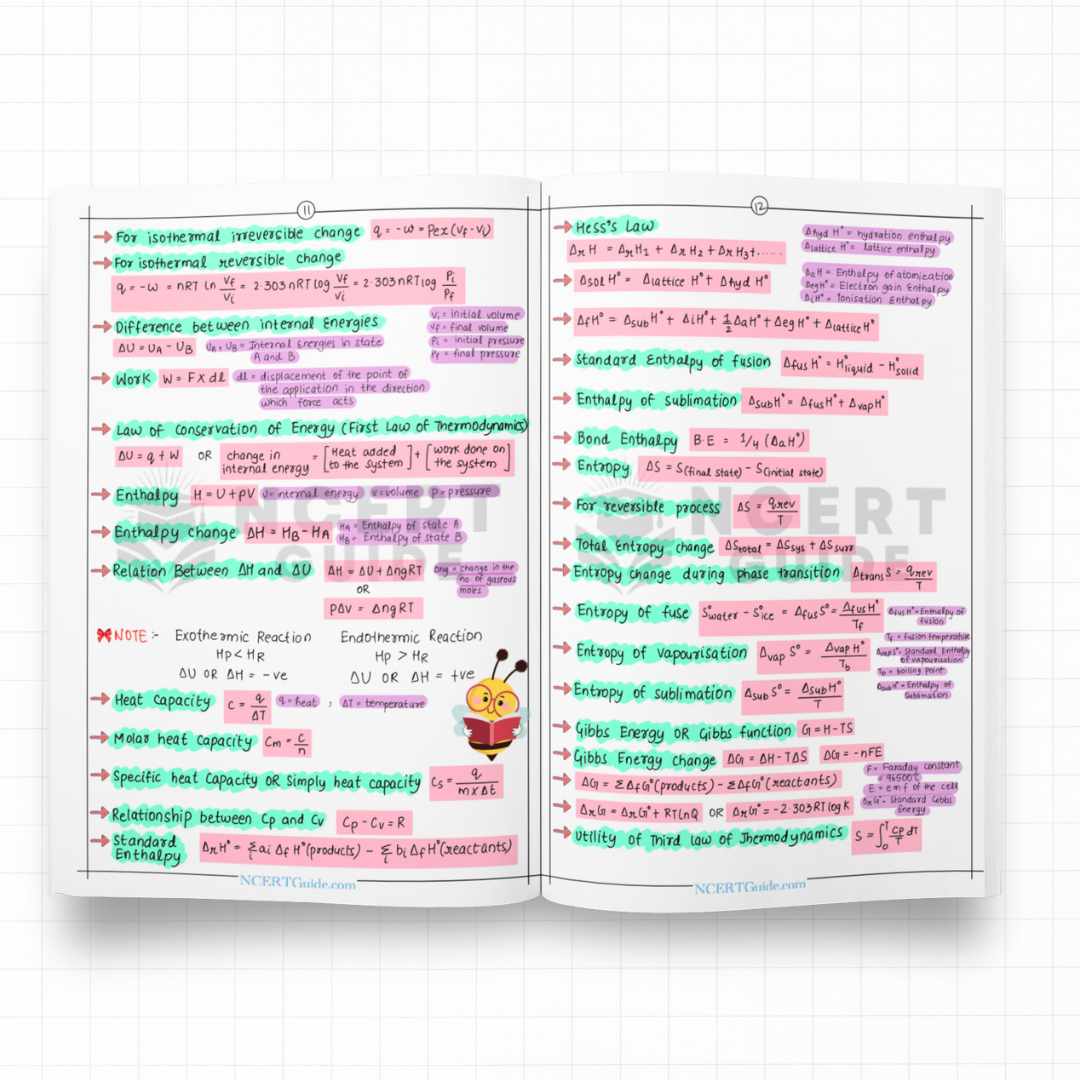 11
→ For isothermal irreversible change q = -w = Pex (Vf - Vi)
→ For isothermal reversible change
q = -w = nRT ln Vf/Vi = 2.303 nRT log Vf/Vi = 2.303 nRT log Pi/Pf
Vi = initial volume
Vf = final volume
Pi = initial pressure
Pf = final pressure
→ Difference between internal Energies
ΔU = UA - UB UA = UB = Internal Energies in state
A and B
→ Work W = F X dl dl = displacement of the point of
the application in the direction
which force acts
→ Law of Conservation of Energy (First Law of Thermodynamics)
ΔU = q + W OR change in internal energy = [Heat added to the system] + [work done on the system]
→ Enthalpy H = U + pV U = internal energy v = volume P = pressure
→ Enthalpy change ΔH = HB - HA HA = Enthalpy of state A
HB = Enthalpy of state B
→ Relation Between ΔH and ΔU ΔH = ΔU + ΔngRT
OR
PΔV = ΔngRT
Δng = change in the
no of gasrous
moles
NOTE :- Exothermic Reaction Endothermic Reaction
HP < HR HP > HR
ΔU OR ΔH = -ve ΔU OR ΔH = +ve
→ Heat Capacity C = q/ΔT q = heat , ΔT = temperature
→ Molar heat Capacity Cm = C/n
→ Specific heat Capacity OR Simply heat capacity Cs = q/m×Δt
→ Relationship between Cp and Cv Cp - Cv = R
→ Standard
Enthalpy ΔrH° = Σ ai Δf H°(products) - Σ bi Δf H°(reactants)
NCERTGuide.com
12
→ Hess's Law
ΔrH = ΔrH1 + ΔrH2 + ΔrH3+.....
Δhyd H° = hydration enthalpy
Δlattice H° = lattice enthalpy
→ Δsol H° = Δlattice H° + Δhyd H°
ΔaH = Enthalpy of atomization
ΔegH° = Electron gain Enthalpy
ΔiH° = Ionisation Enthalpy
→ ΔfH° = ΔsubH° + ΔiH° + 1/2 ΔaH° + ΔegH° + ΔlatticeH°
→ Standard Enthalpy of fusion ΔfusH° = H°liquid - H°solid
→ Enthalpy of sublimation ΔsubH° = ΔfusH° + ΔvapH°
→ Bond Enthalpy B.E = 1/4 (ΔaH°)
→ Entropy ΔS = S(final state) - S(initial state)
→ For reversible process ΔS = qrev/T
→ Total Entropy change ΔStotal = ΔSsys + ΔSsurr
→ Entropy change during phase transition ΔtransS = qrev/T
→ Entropy of fuse S°water - S°ice = ΔfusS° = ΔfusH°/Tf
ΔfusH° = Enthalpy of
fusion
Tf = fusion temperature
→ Entropy of vapourisation ΔvapS° = ΔvapH°/Tb
ΔvapS° = Standard Enthalpy
of vapourisation
Tb = boiling point
→ Entropy of sublimation ΔsubS° = ΔsubH°/T
ΔsubH° = Enthalpy of
Sublimation
→ Gibbs Energy OR Gibbs function G = H - TS
→ Gibbs Energy change ΔG = ΔH - TΔS ΔG = -nFE
→ ΔG = ΣΔfG°(products) - ΣΔfG°(reactants)
F = Faraday constant
= 96500c
E = emf of the cell
ΔrG° = Standard Gibbs
Energy
→ ΔrG = ΔrG° + RT lnQ OR ΔrG° = -2.303 RT log K
→ Utility of Third law of Thermodynamics S = ∫₀ᵀ Cp dT/T
NCERTGuide.com
NCERT
GUIDE
NCERT
GUIDE